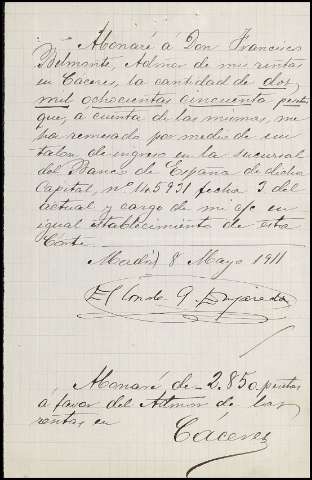 Abonaré á Don Francisco
Belmonte, Admor de mis rentas
en Cáceres, la cantidad de dos
mil ochocientas cincuenta pesetas
que, a cuenta de las mismas, me
ha remesado por medio de un
talon de ingreso en la sucursal
del Banco de España de dicha
Capital, nº 145931 fecha 3 del
actual y cargo de mi c/c en
igual establecimiento de esta
Corte.
Madrid 8 Mayo 1911
El Conde
Abonaré de 2.850 pesetas
á favor del Admor de las
rentas en
Cáceres